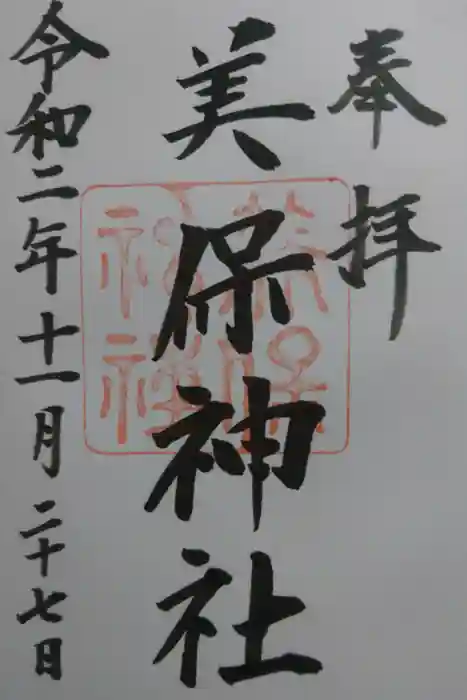 奉拝
美保神社
令和二年十一月二十七日
美保神社